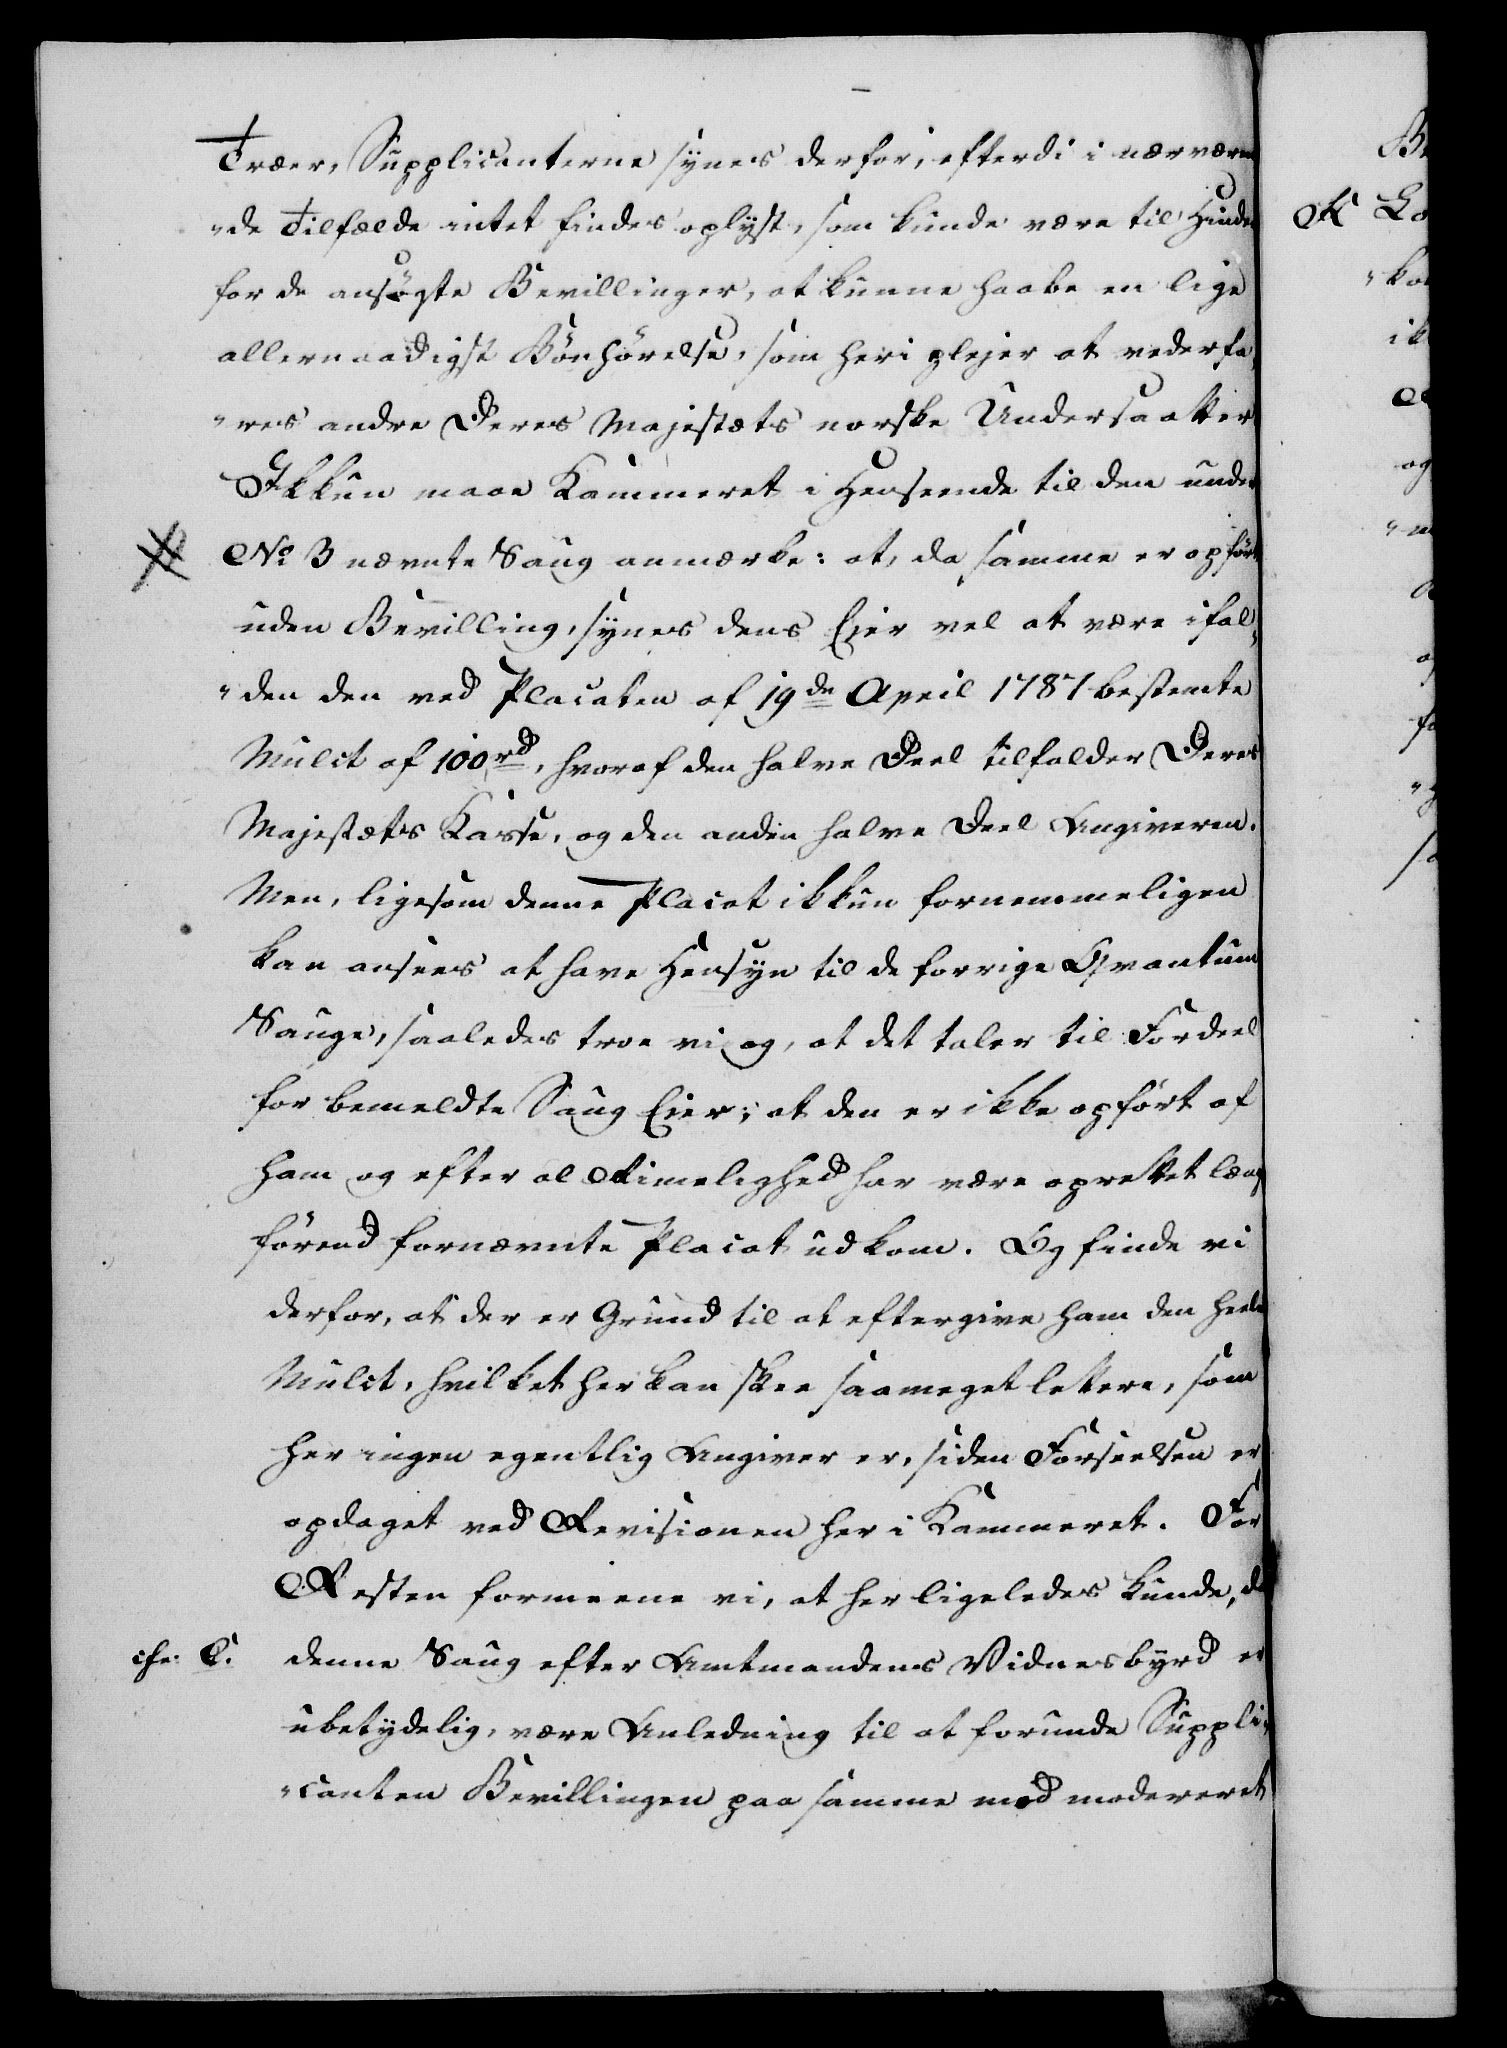 Træer, Supplicanterne synes derfor, efterdi i nærværen
"de Tilfælde intet findes oplyst, som kunde være til Hinder
for de ansøgte Bevillinger, at kunne haabe en lige
allernaadigst Bönhörelse, som heri plejer at vederfa,
"res andre Deres Majestæts norske Undersaatter
Ikkun maae Kammeret i Henseende til den under
No 3 nævnte Saug anmærke: at, da samme er opført
uden Bevilling, synes dens Eier vel at være ifal,
"den den ved Placaten af 19de April 1787 bestemte
Mulct af 100rd, hvoraf den halve Deel tilfalder Deres
Majestæts Kasse, og den anden halve Deel Angiveren.
Men, ligesom denne Placat ikkun fornemmeligen
kan ansees at have Hensyn til de forrige Qvantum
Sauge, saaledes troe vi og, at det taler til Fordeel
for bemeldte Saug Eier, at den er ikke opfört af
ham og efter al Rimelighed har være oprettet læng
förend fornævnte Placat udkom. Og finde vi
derfor, at der er Grund til at eftergive ham den heele
Mulct, hvilket her kan skee saameget lettere, som
her ingen egentlig Angiver er, siden Forseelsen er
opdaget ved Revisionen her i Kammeret. For
Resten formeene vi, at her ligeledes kunde, da
cfr: C. denne Saug efter Amtmandens Vidnesbyrd er
ubetydelig, være Anledning til at forunde Suppli,
"canten Bevillingen paa samme med modereret